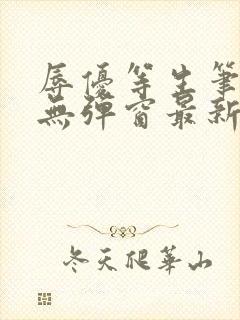 辱優等生筆
無彈窗最新
冬天爬華山